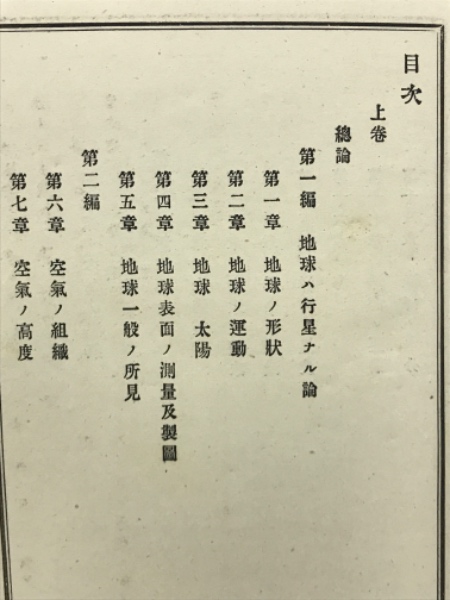 目次
上卷
總論
第一編　地球ハ行星ナル論
第一章　地球ノ形狀
第二章　地球ノ運動
第三章　地球　太陽
第四章　地球表面ノ測量及製圖
第五章　地球一般ノ所見
第二編
第六章　空氣ノ組織
第七章　空氣ノ高度